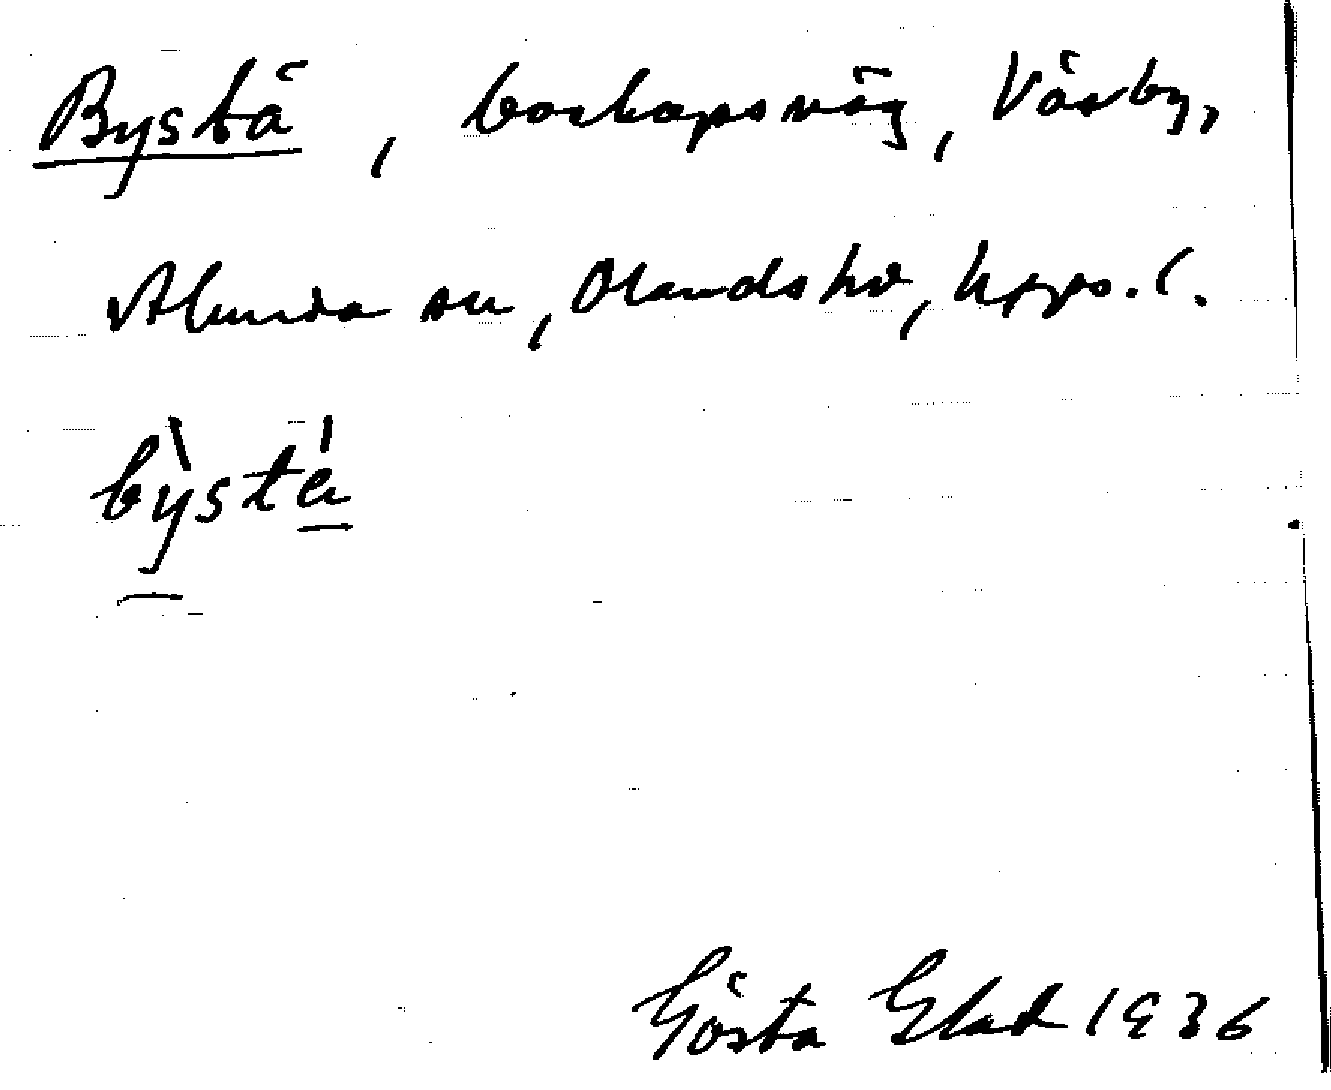 Bystå, boskapsväg, Väsby,
Alunda sn, Olands hd, Upps. l.
bỳsta
Gösta Elad 1936